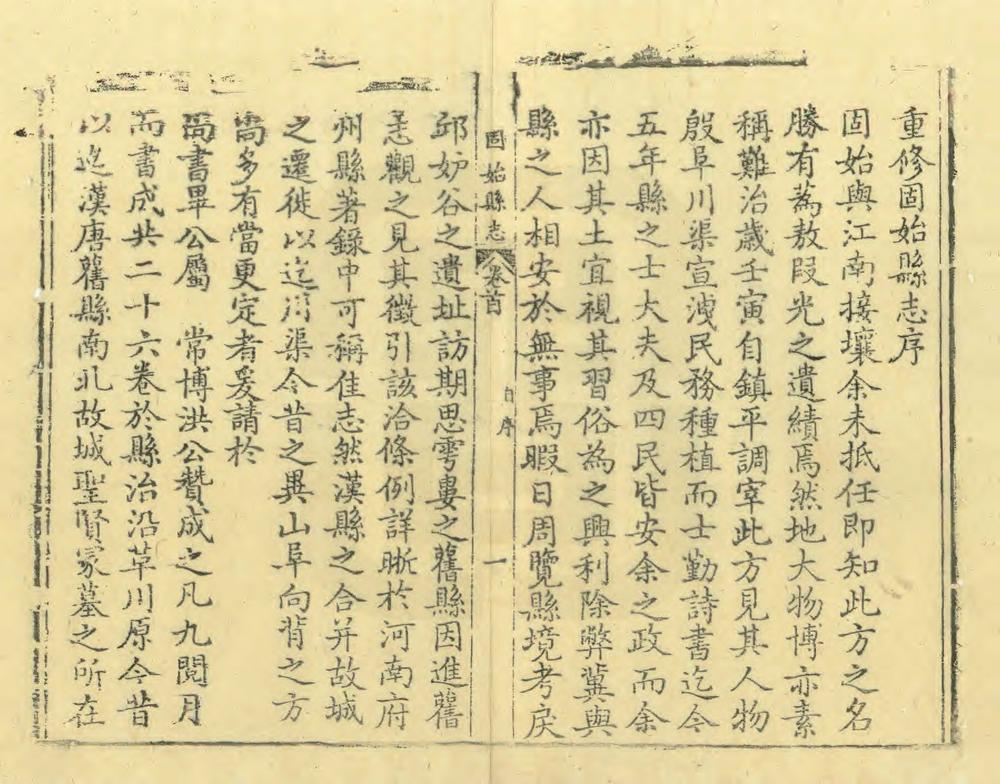 重修固始縣志序
固始與江南接壤余未抵任即知此方之名
勝有蒍敖叚光之遺績焉然地大物博亦素
稱難治歲壬寅自鎮平調宰此方見其人物
殷阜川渠宣洩民務種植而士勤詩書迄今
五年縣之士大夫及四民皆安余之政而余
亦因其土宜視其習俗為之興利除弊冀與
縣之人相安於無事焉暇日周覽縣境考戾
固始縣志 卷首 自序 一
邱妎谷之遺址訪期思雩婁之舊縣因進舊
志觀之見其徵引該洽條例詳晰於河南府
州縣著錄中可稱佳志然漢縣之合并故城
之遷徙以迄川渠今昔之異山阜向背之方
尚多有當更定者爰請於
尚書畢公屬 常博洪公贊成之凡九閱月
而書成共二十六卷於縣治沿革川原今昔
以迄漢唐舊縣南北故城聖賢冢墓之所在